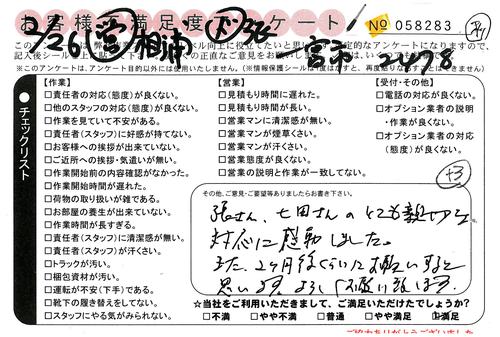 お客様満足度アンケート
No 058283
2/26 相浦
宮市 2478
※このアンケートは、アンケート目的以外には使用いたしません。
チェックリスト
【作業】
□責任者の対応(態度)が良くない。
□他のスタッフの対応(態度)が良くない。
□作業を見ていて不安がある。
□責任者(スタッフ)に好感が持てない。
□お客様への挨拶が出来ていない。
□ご近所への挨拶・気遣いが無い。
□作業開始前の内容確認がなかった。
□作業開始時間が遅れた。
□荷物の取り扱いが雑である。
□お部屋の養生が出来ていない。
□作業時間が長すぎる。
□責任者(スタッフ)に清潔感が無い。
□責任者(スタッフ)が汗くさい。
□トラックが汚い。
□梱包資材が汚い。
□運転が不安(下手)である。
□靴下の履き替えをしてない。
□スタッフにやる気がみられない。
【営業】
□見積もり時間に遅れた。
□見積もり時間が長い。
□営業マンに清潔感が無い。
□営業マンが煙草くさい。
□営業マンが汗くさい。
□営業態度が良くない。
□営業の説明と作業が一致してない。
【受付・その他】
□電話の対応が良くない。
□オプション業者の説明
・作業が良くない。
□オプション業者の対応
(態度)が良くない。
+3
その他、ご意見・ご要望等ありましたらお書き下さい。
張さん、七田さんのとても親切な
対応に感動しました。
また、2ヶ月後くらいにお願いすると
思います。よろしくお願い致します。
☆当社をご利用いただきまして、ご満足いただけたでしょうか?
□不満 □やや不満 □普通 □やや満足 □満足
ご協力ありがとうございました